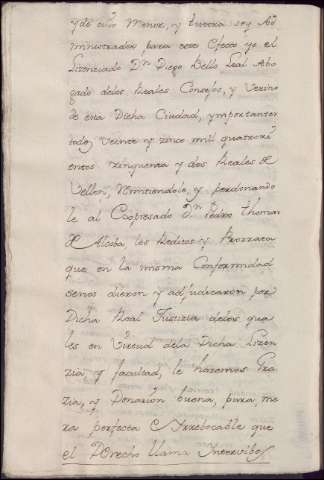 y de esto Menor, y tutora soy Ad
ministrador para este Efecto yo el
Licenciado Dn Diego Bello Leal Abo
gado delos Reales Consejos, y Vezino
de esta Dicha Ciudad, ymportantes
todos Veinte y zinco mil quatrozi
entos zinquenta y dos Reales de
Vellon, Remitiendole, y perdonando
le al Coopresado Dn Pedro Thomas
de Alcoba, los Reditos y Prorrata
que en la misma Conformidad
senos dieron y adjudicaron por
Dicha Real Justicia delos qua
les en Virtud dela Dicha Lizen
zia, y facultad, le hazemos Gra
zia, y Donazion buena, pura, me
ra perfecta e Yrrebocable que
el Derecho llama Intervibos